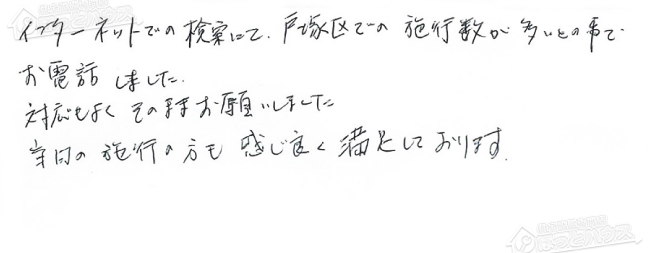 インターネットでの検索にて、戸塚区での施行数が多いとの事で
お電話しました。
対応もよくそのままお願いしました
当日の施行の方も感じ良く満足しております。